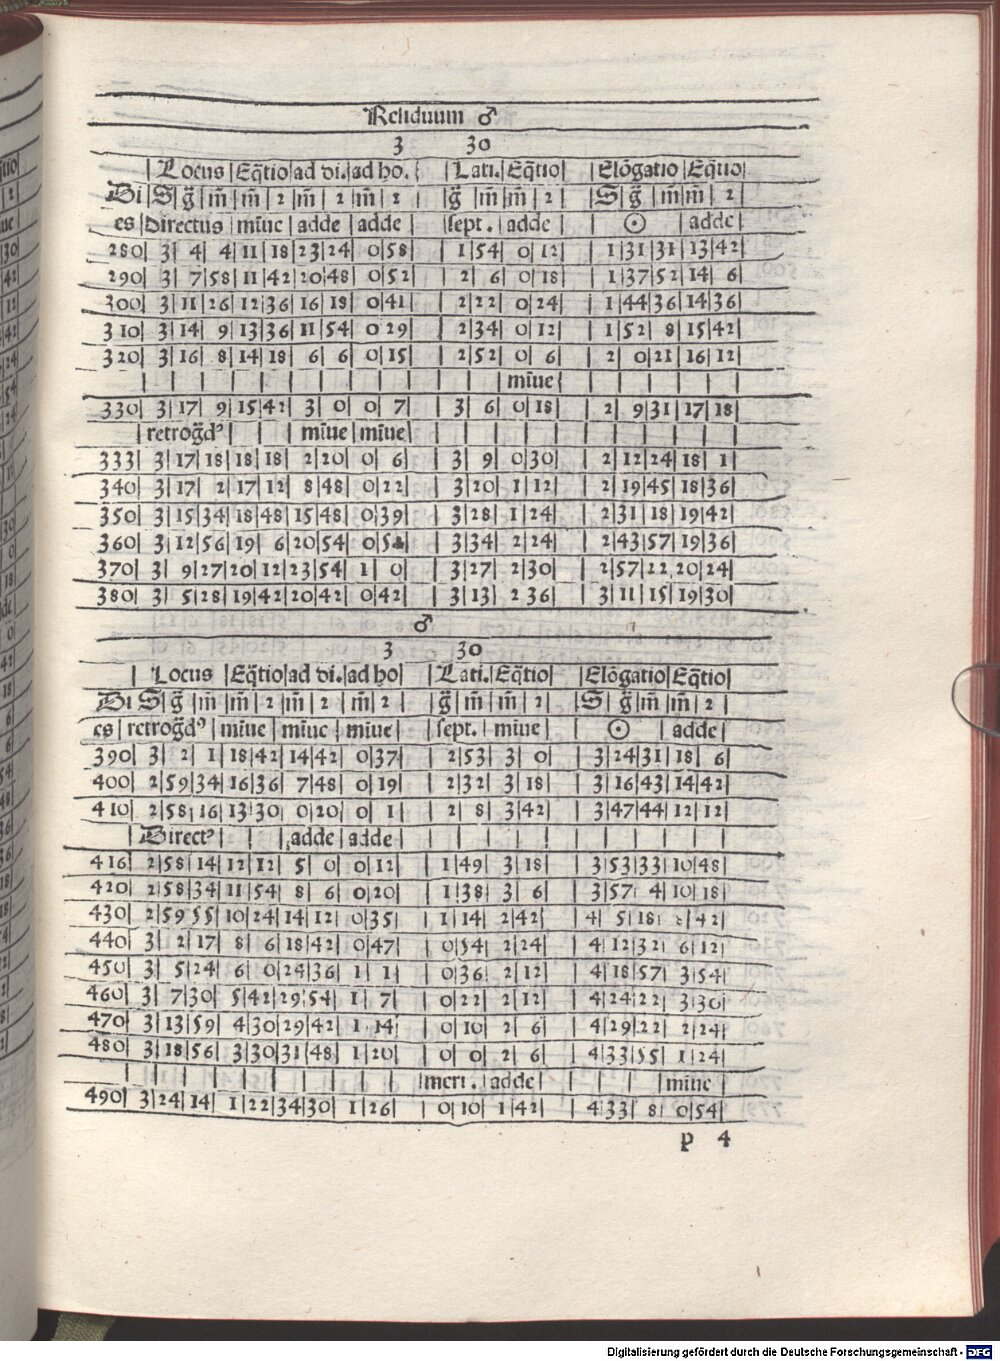 Residuum ♂
3 30
| Locus | Eq̃tio | ad di. | ad ho. | | Lati. | Eq̃tio | | Elõgatio | Eq̃tio |
Di | S | g̃ | m̃ | m̃ | 2 | m̃ | 2 | m̃ | 2 | g̃ | m̃ | m̃ | 2 | | S | g̃ | m̃ | m̃ | 2 |
es | Directus | miũe | adde | adde | | sept. | adde | | ☉ | adde |
280 | 3 | 4 | 4 | 11 | 18 | 23 | 24 | 0 | 58 | | 1 | 54 | 0 | 12 | | 1 | 31 | 31 | 13 | 42 |
290 | 3 | 7 | 58 | 11 | 42 | 20 | 48 | 0 | 52 | | 2 | 6 | 0 | 18 | | 1 | 37 | 52 | 14 | 6 |
300 | 3 | 11 | 26 | 12 | 36 | 16 | 18 | 0 | 41 | | 2 | 22 | 0 | 24 | | 1 | 44 | 36 | 14 | 36 |
310 | 3 | 14 | 9 | 13 | 36 | 11 | 54 | 0 29 | | 2 | 34 | 0 | 12 | | 1 | 52 | 8 | 15 | 42 |
320 | 3 | 16 | 8 | 14 | 18 | 6 | 6 | 0 | 15 | | 2 | 52 | 0 | 6 | | 2 | 0 | 21 | 16 | 12 |
miũe
330 | 3 | 17 | 9 | 15 | 42 | 3 | 0 | 0 | 7 | | 3 | 6 | 0 | 18 | | 2 | 9 | 31 | 17 | 18 |
| retrog̃dꝰ | | | miũe | miũe |
333 | 3 | 17 | 18 | 18 | 18 | 2 | 20 | 0 | 6 | | 3 | 9 | 0 | 30 | | 2 | 12 | 24 | 18 | 1 |
340 | 3 | 17 | 2 | 17 | 12 | 8 | 48 | 0 | 22 | | 3 | 20 | 1 | 12 | | 2 | 19 | 45 | 18 | 36 |
350 | 3 | 15 | 34 | 18 | 48 | 15 | 48 | 0 | 39 | | 3 | 28 | 1 | 24 | | 2 | 31 | 18 | 19 | 42 |
360 | 3 | 12 | 56 | 19 | 6 | 20 | 54 | 0 | | | 3 | 34 | 2 | 24 | | 2 | 43 | 57 | 19 | 36 |
370 | 3 | 9 | 27 | 20 | 12 | 23 | 54 | 1 | 0 | | 3 | 27 | 2 | 30 | | 2 | 57 | 22 | 20 | 24 |
380 | 3 | 5 | 28 | 19 | 42 | 20 | 42 | 0 | 42 | | 3 | 13 | 2 36 | | 3 | 11 | 15 | 19 | 30 |
♂
3 30
| Locus | Eq̃tio | ad di. | ad ho | | Lati. | Eq̃tio | | Elõgatio | Eq̃tio |
Di | S | g̃ | m̃ | m̃ | 2 | m̃ | 2 | m̃ | 2 | | g̃ | m̃ | m̃ | 2 | | S | g̃ | m̃ | m̃ | 2 |
es | retrog̃dꝰ | miũe | miũe | miũe | | sept. | miũe | | ☉ | adde |
390 | 3 | 2 | 1 | 18 | 42 | 14 | 42 | 0 | 37 | | 2 | 53 | 3 | 0 | | 3 | 24 | 31 | 18 | 6 |
400 | 2 | 59 | 34 | 16 | 36 | 7 | 48 | 0 | 19 | | 2 | 32 | 3 | 18 | | 3 | 16 | 43 | 14 | 42 |
410 | 2 | 58 | 16 | 13 | 30 | 0 | 20 | 0 | 1 | | 2 | 8 | 3 | 42 | | 3 | 47 | 44 | 12 | 12 |
| Directꝰ | | | adde | adde |
416 | 2 | 58 | 14 | 12 | 12 | 5 | 0 | 0 | 12 | | 1 | 49 | 3 | 18 | | 3 | 53 | 33 | 10 | 48 |
420 | 2 | 58 | 34 | 11 | 54 | 8 | 6 | 0 | 20 | | 1 | 38 | 3 | 6 | | 3 | 57 | 4 | 10 | 18 |
430 | 2 | 59 55 | 10 | 24 | 14 | 12 | 0 | 35 | | 1 | 14 | 2 | 42 | | 4 | 5 | 18 | | 42 |
440 | 3 | 2 | 17 | 8 | 6 | 18 | 42 | 0 | 47 | | 0 | 54 | 2 | 24 | | 4 | 12 | 32 | 6 | 12 |
450 | 3 | 5 | 24 | 6 | 0 | 24 | 36 | 1 | 1 | | 0 | 36 | 2 | 12 | | 4 | 18 | 57 | 3 | 54 |
460 | 3 | 7 | 30 | 5 | 42 | 29 | 54 | 1 | 7 | | 0 | 22 | 2 | 12 | | 4 | 24 | 22 | 3 | 30 |
470 | 3 | 13 | 59 | 4 | 30 | 29 | 42 | 1 14 | | 0 | 10 | 2 | 6 | | 4 | 29 | 22 | 2 | 24 |
480 | 3 | 18 | 56 | 3 | 30 | 31 | 48 | 1 | 20 | | 0 | 0 | 2 | 6 | | 4 | 33 | 55 | 1 | 24 |
| meri. | adde | | miũe |
490 | 3 | 24 | 14 | 1 | 22 | 34 | 30 | 1 | 26 | | 0 | 10 | 1 | 42 | | 4 | 33 | 8 | 0 | 54 |
p 4
Digitalisierung gefördert durch die Deutsche Forschungsgemeinschaft - DFG